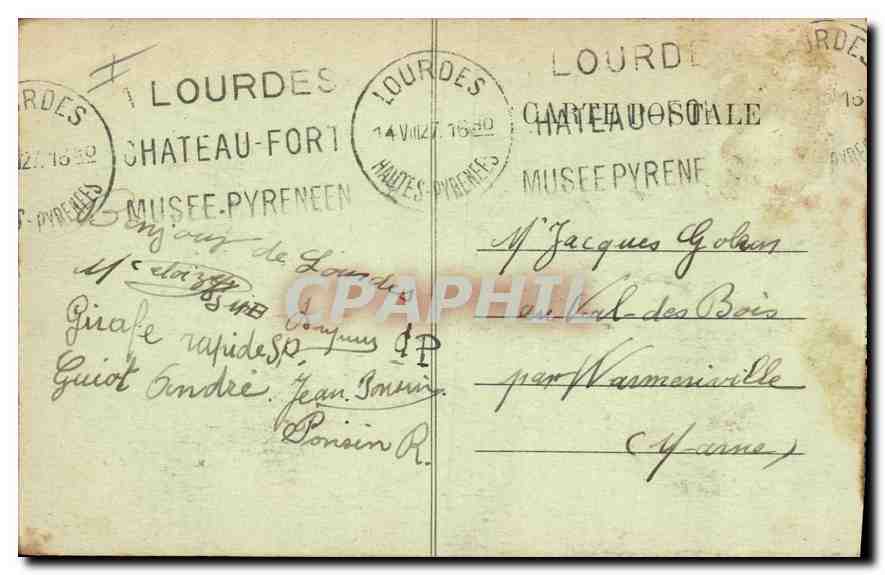 LOURDES
CHATEAU-FORT
MUSEE-PYRENEEN
LOURDES
14 VIII 27. 16 30
HAUTES-PYRENEES
LOURDE
HATEAU-FO
MUSEE PYRENE
CARTE POSTALE
RDES
27. 16 30
S-PYRENEES
URDES
16
PYRE
Bonjour de Lourdes
Girafe rapide S.P.
Guiot André. Jean Bonsin
Ponsin R.
CPAPHIL
Mr Jacques
au Val-des Bois
par Warmeriville
(Marne)